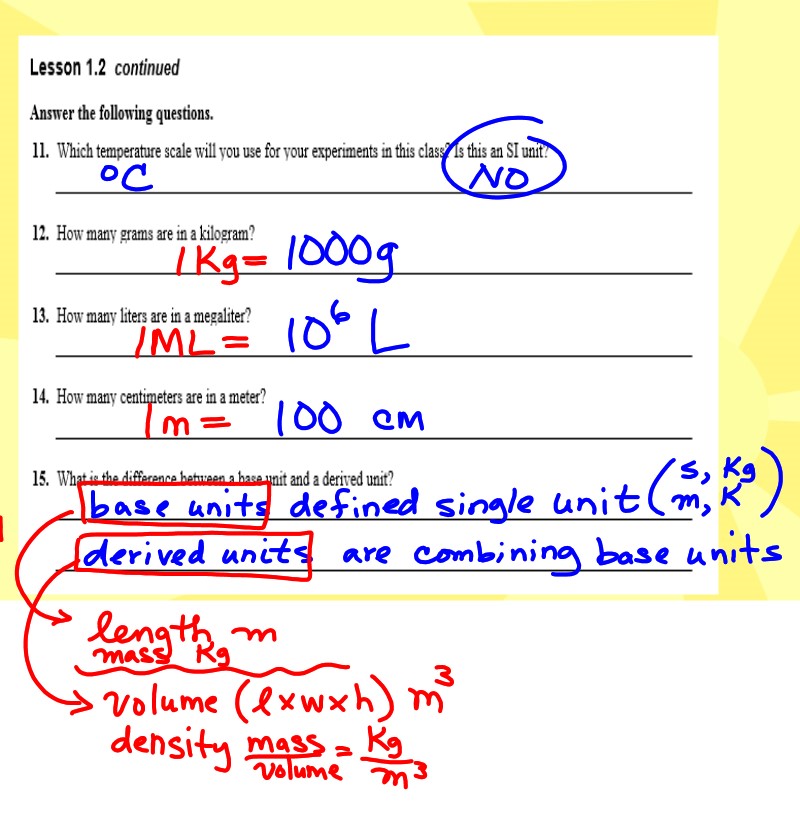 Lesson 1.2 continued
Answer the following questions.
11. Which temperature scale will you use for your experiments in this class? Is this an SI unit?
°C NO
12. How many grams are in a kilogram?
1Kg= 1000g
13. How many liters are in a megaliter?
1ML= 10⁶ L
14. How many centimeters are in a meter?
1m= 100 cm
15. What is the difference between a base unit and a derived unit?
base units defined single unit (s, Kg
m, K)
derived units are combining base units
length m
mass Kg
volume (l×w×h) m³
density mass/volume = Kg/m³